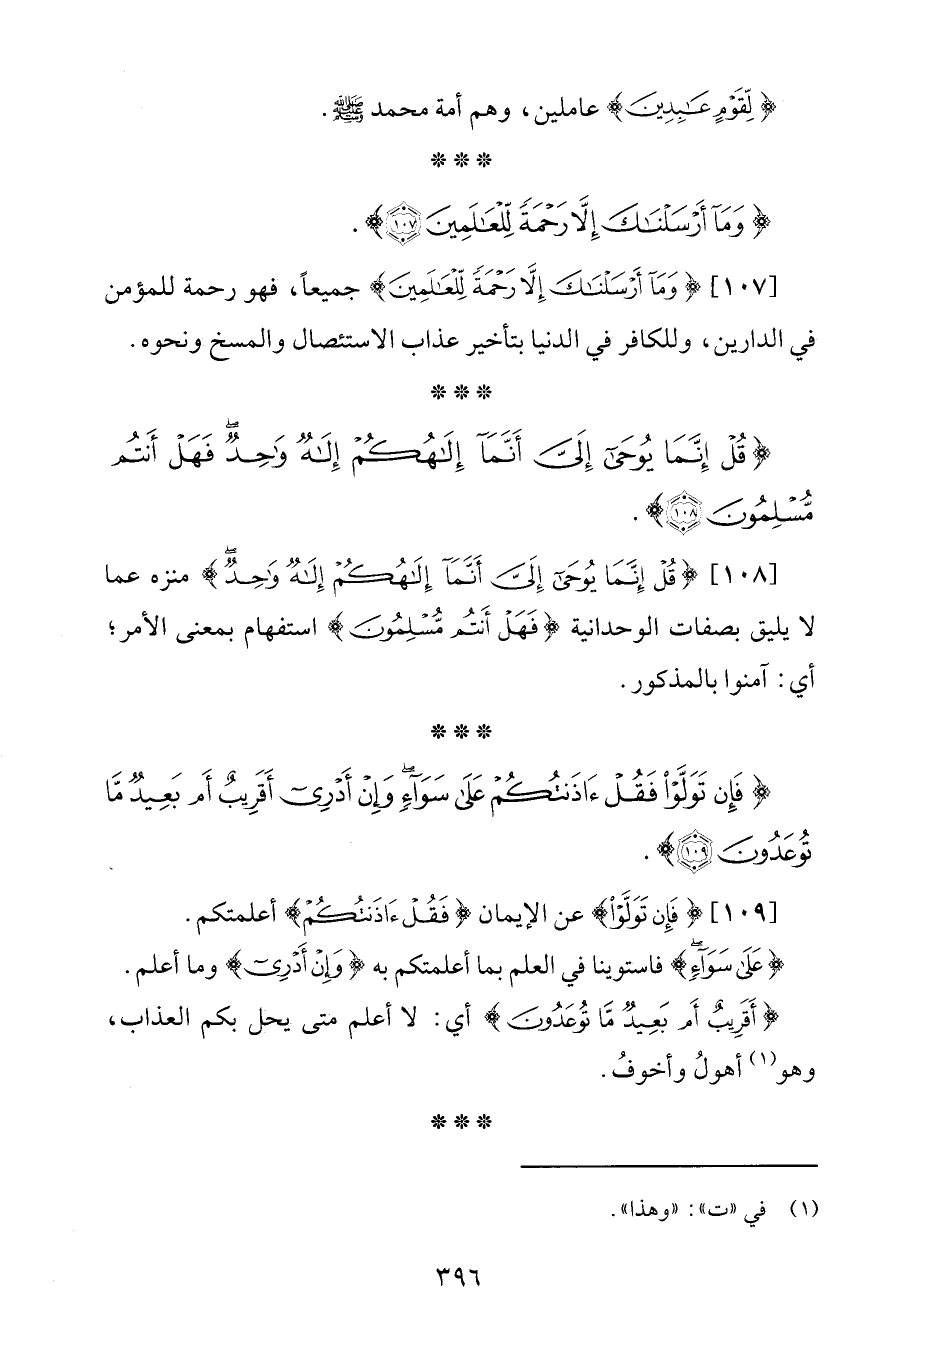 ﴿ لِّقَوْمٍ عَٰبِدِينَ﴾ عاملين، وهم أمة محمد ﷺ.
* * *
﴿ وَمَآ أَرْسَلْنَٰكَ إِلَّا رَحْمَةً لِّلْعَٰلَمِينَ ١٠٧﴾.
[١٠٧] ﴿ وَمَآ أَرْسَلْنَٰكَ إِلَّا رَحْمَةً لِّلْعَٰلَمِينَ﴾ جميعاً، فهو رحمة للمؤمن
في الدارين، وللكافر في الدنيا بتأخير عذاب الاستئصال والمسخ ونحوه.
* * *
﴿ قُلْ إِنَّمَا يُوحَىٰٓ إِلَىَّ أَنَّمَآ إِلَٰهُكُمْ إِلَٰهٌ وَٰحِدٌ ۖ فَهَلْ أَنتُم
مُّسْلِمُونَ ١٠٨﴾.
[١٠٨] ﴿ قُلْ إِنَّمَا يُوحَىٰٓ إِلَىَّ أَنَّمَآ إِلَٰهُكُمْ إِلَٰهٌ وَٰحِدٌ ۖ ﴾ منزه عما
لا يليق بصفات الوحدانية ﴿ فَهَلْ أَنتُم مُّسْلِمُونَ ﴾ استفهام بمعنى الأمر؛
أي: آمنوا بالمذكور.
* * *
﴿ فَإِن تَوَلَّوْا۟ فَقُلْ ءَاذَنتُكُمْ عَلَىٰ سَوَآءٍ ۖ وَإِنْ أَدْرِىٓ أَقَرِيبٌ أَم بَعِيدٌ مَّا
تُوعَدُونَ ١٠٩﴾.
[١٠٩] ﴿ فَإِن تَوَلَّوْا۟﴾ عن الإيمان ﴿ فَقُلْ ءَاذَنتُكُمْ﴾ أعلمتكم.
﴿ عَلَىٰ سَوَآءٍ ۖ﴾ فاستوينا في العلم بما أعلمتكم به ﴿ وَإِنْ أَدْرِىٓ﴾ وما أعلم.
﴿ أَقَرِيبٌ أَم بَعِيدٌ مَّا تُوعَدُونَ ﴾ أي: لا أعلم متى يحل بكم العذاب،
وهو(١) أهولُ وأخوفُ.
* * *
(١) في «ت»: «وهذا».
٣٩٦